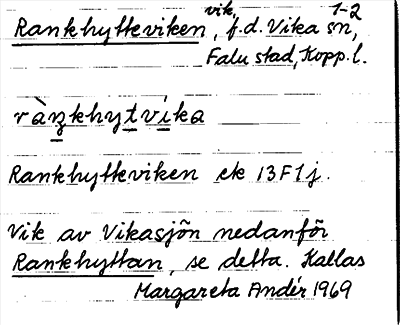 vik, 1-2
Rankhytteviken, f.d. Vika sn,
Falu stad, Kopp. l.
rànkhytvíka
Rankhytteviken ek 13F1j.
Vik av Vikasjön nedanför
Rankhyttan, se detta. Kallas
Margareta Andér 1969